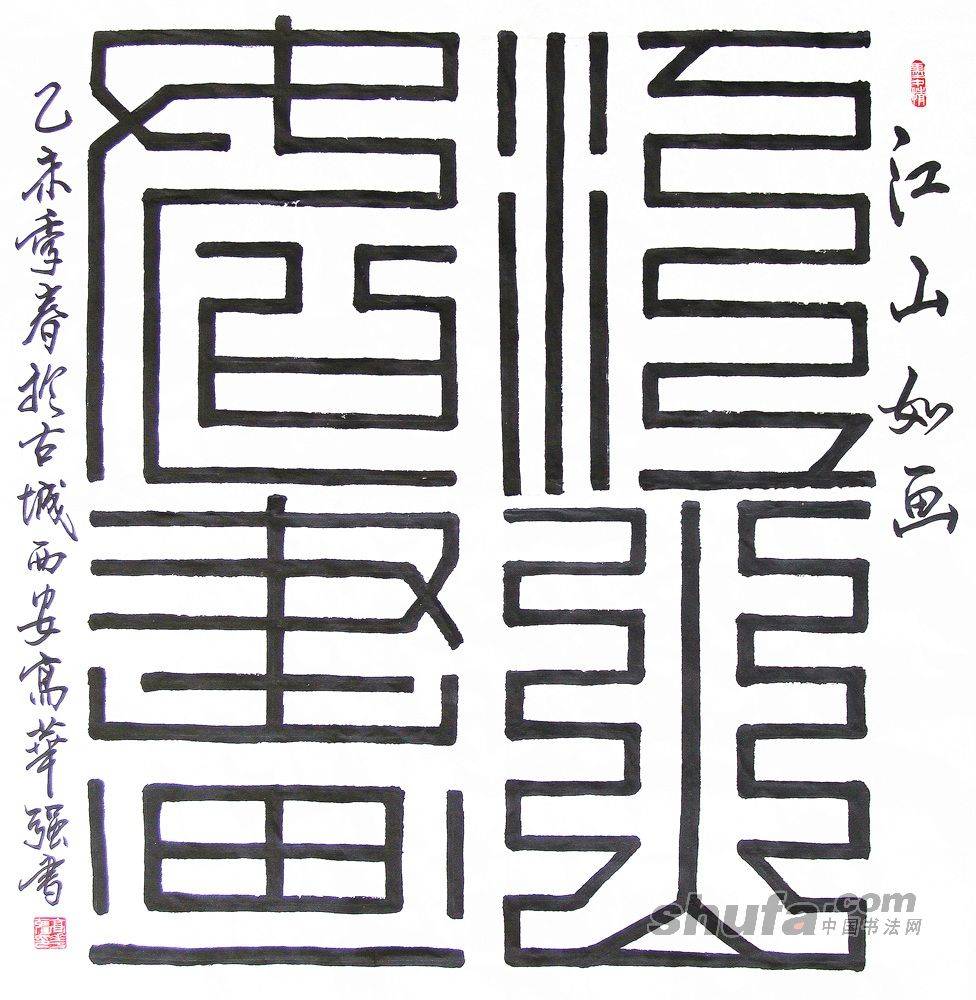 江山如画
江山如畫
乙未季春於古城西安高華强書
shufa.com
中国书法网